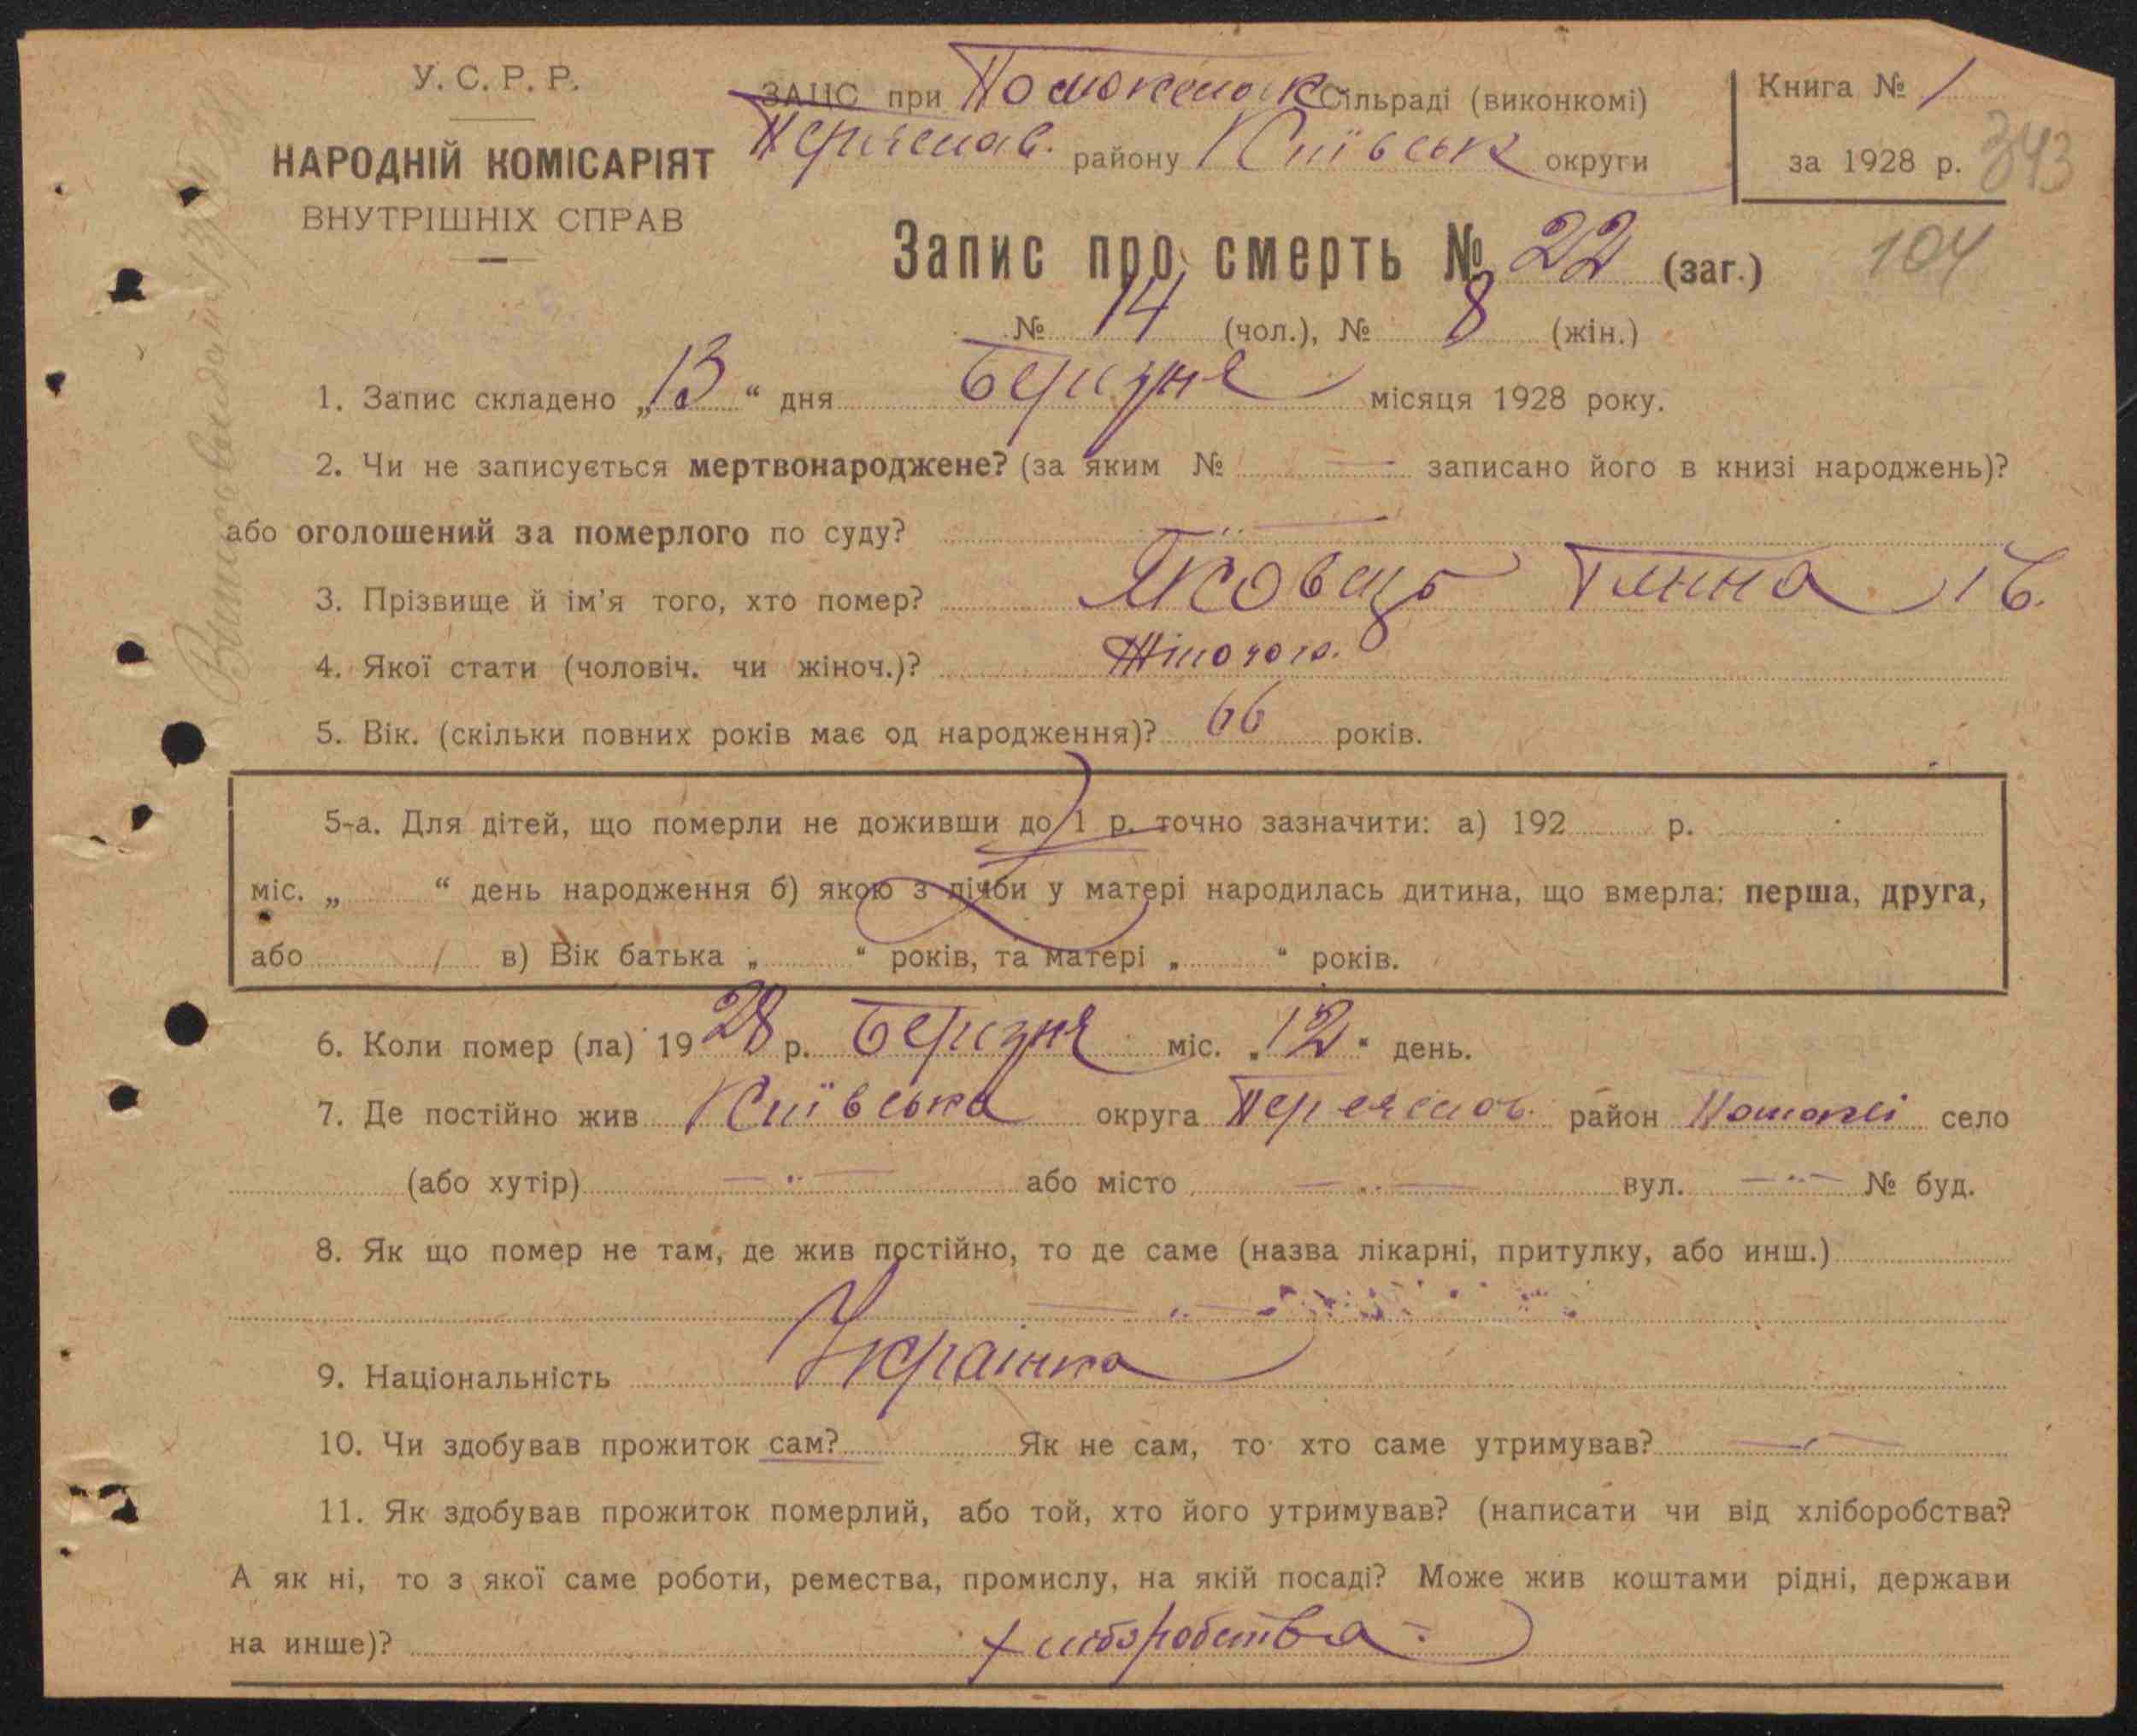 У. С. Р. Р.
НАРОДНІЙ КОМІСАРІЯТ
ВНУТРІШНІХ СПРАВ
ЗАЦС при Сільраді (виконкомі)
Переяслав. району Київськ округи
Книга № 1
за 1928 р.
343
104
Запис про смерть № 22 (заг.)
№ 14 (чол.), № 8 (жін.)
1. Запис складено „13“ дня Березня місяця 1928 року.
2. Чи не записується мертвонароджене? (за яким № — записано його в книзі народжень)?
або оголошений за померлого по суду?
3. Прізвище й ім’я того, хто помер? Яковець Ганна
4. Якої стати (чоловіч. чи жіноч.)? Жіночого.
5. Вік. (скільки повних років має од народження)? 66 років.
5-а. Для дітей, що померли не доживши до 1 р. точно зазначити: а) 192 р.
міс. „ “ день народження б) якою з лічби у матері народилась дитина, що вмерла: перша, друга,
або в) Вік батька „ “ років, та матері „ “ років.
6. Коли помер (ла) 1928 р. Березня міс. „12“ день.
7. Де постійно жив Київська округа Переяслав. район село
(або хутір) —〃— або місто —〃— вул. —〃— № буд.
8. Як що помер не там, де жив постійно, то де саме (назва лікарні, притулку, або инш.)
—〃—
9. Національність Украінка
10. Чи здобував прожиток сам? Як не сам, то хто саме утримував? —〃—
11. Як здобував прожиток померлий, або той, хто його утримував? (написати чи від хліборобства?
А як ні, то з якої саме роботи, ремества, промислу, на якій посаді? Може жив коштами рідні, держави
на инше)? хліборобства.